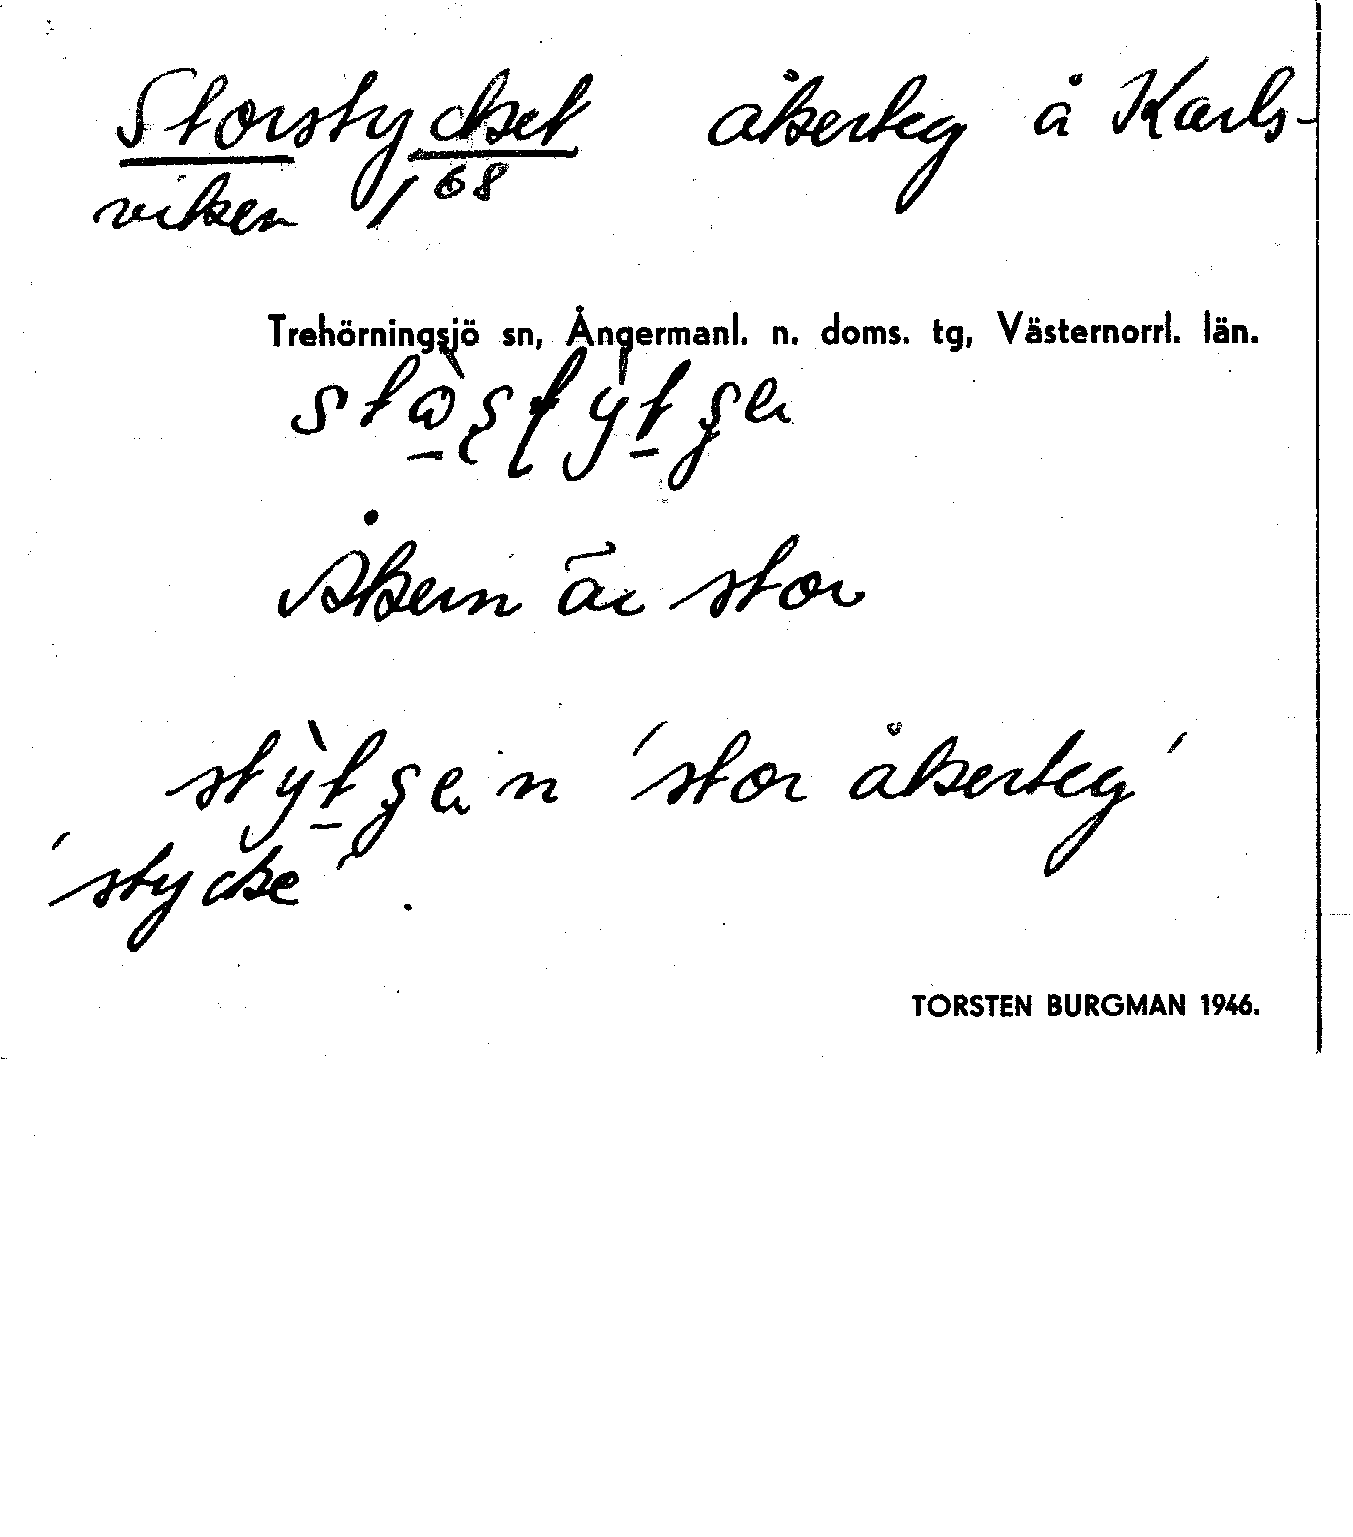 Storstycket åkerteg å Karls-
viken 1⁶⁸
Trehörningsjö sn, Ångermanl. n. doms. tg, Västernorrl. län.
Åkern är stor
n 'stor åkerteg'
'stycke'.
TORSTEN BURGMAN 1946.